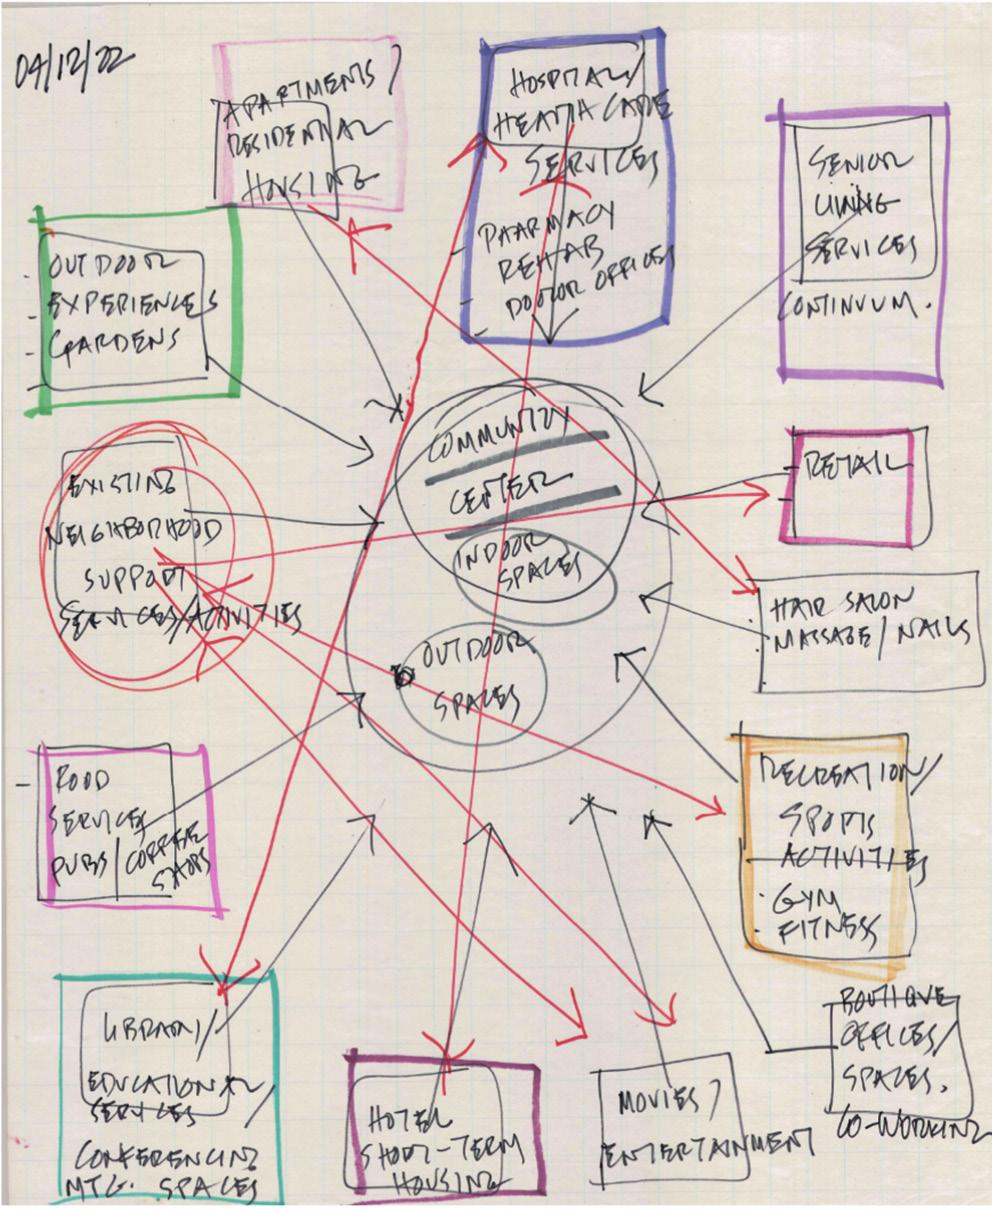 04/12/22
APARTMENTS/
RESIDENTIAL
HOUSING
HOSPITAL/
HEALTH CARE
SERVICES
PHARMACY
REHAB
DOCTOR OFFICES
SENIOR
LIVING
SERVICES
CONTINUUM.
OUTDOOR
EXPERIENCES
GARDENS
COMMUNITY
CENTER
INDOOR
SPACES
OUTDOOR
SPACES
EXISTING
NEIGHBORHOOD
SUPPORT
SERVICES/ACTIVITIES
RETAIL
HAIR SALON
MASSAGE/NAILS
FOOD
SERVICES
PUBS/COFFEE
SHOPS
RECREATION/
SPORTS
ACTIVITIES
GYM
FITNESS
LIBRARY/
EDUCATIONAL/
SERVICES
CONFERENCING
MTG. SPACES
HOTEL
SHORT-TERM
HOUSING
MOVIES/
ENTERTAINMENT
BOUTIQUE
OFFICES/
SPACES.
CO-WORKING